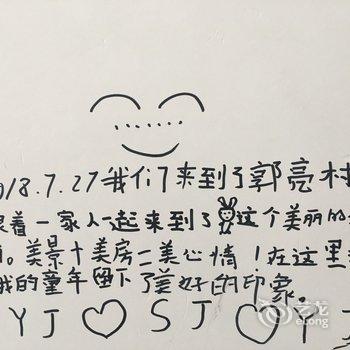 018.7.27我们了来到了郭亮村
跟着一家人一起来到了这个美丽的
。美景十美房二美心情！在这里
我的童年留下了美好的印象。
YJ♡SJ♡
艺龙
eLong.com